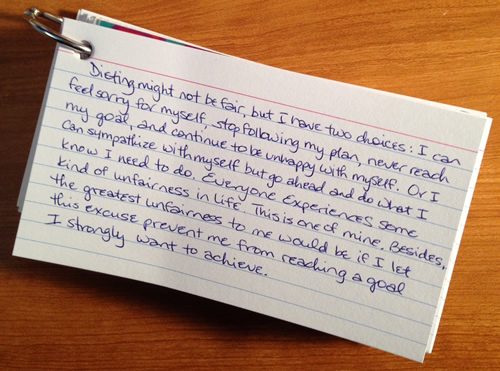 Dieting might not be fair, but I have two choices: I can
feel sorry for myself, stop following my plan, never reach
my goal, and continue to be unhappy with myself. Or I
can sympathize with myself but go ahead and do what I
know I need to do. Everyone experiences some
kind of unfairness in life. This is one of mine. Besides,
the greatest unfairness to me would be if I let
this excuse prevent me from reaching a goal
I strongly want to achieve.